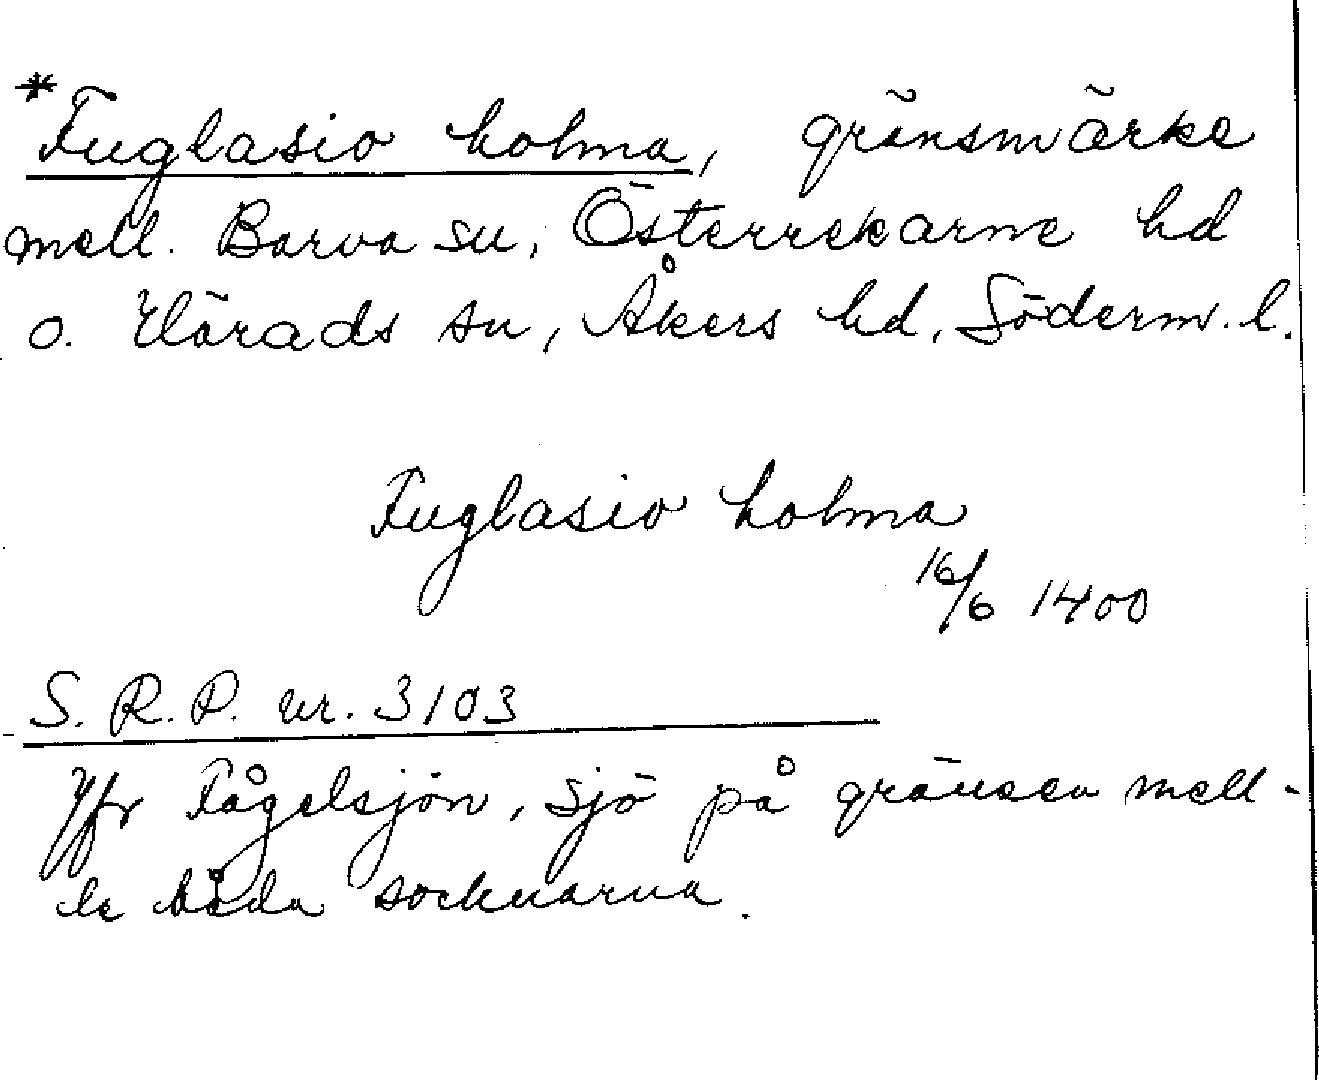 *Fuglasio holma, gränsmärke
mell. Barva sn, Österrekarne hd
o. Härads sn, Åkers hd, Söderm. l.
Fuglasio holma
16/6 1400
S. R. P. nr. 3103
Jfr Fågelsjön, sjö på gränsen mell.
de båda socknarna.